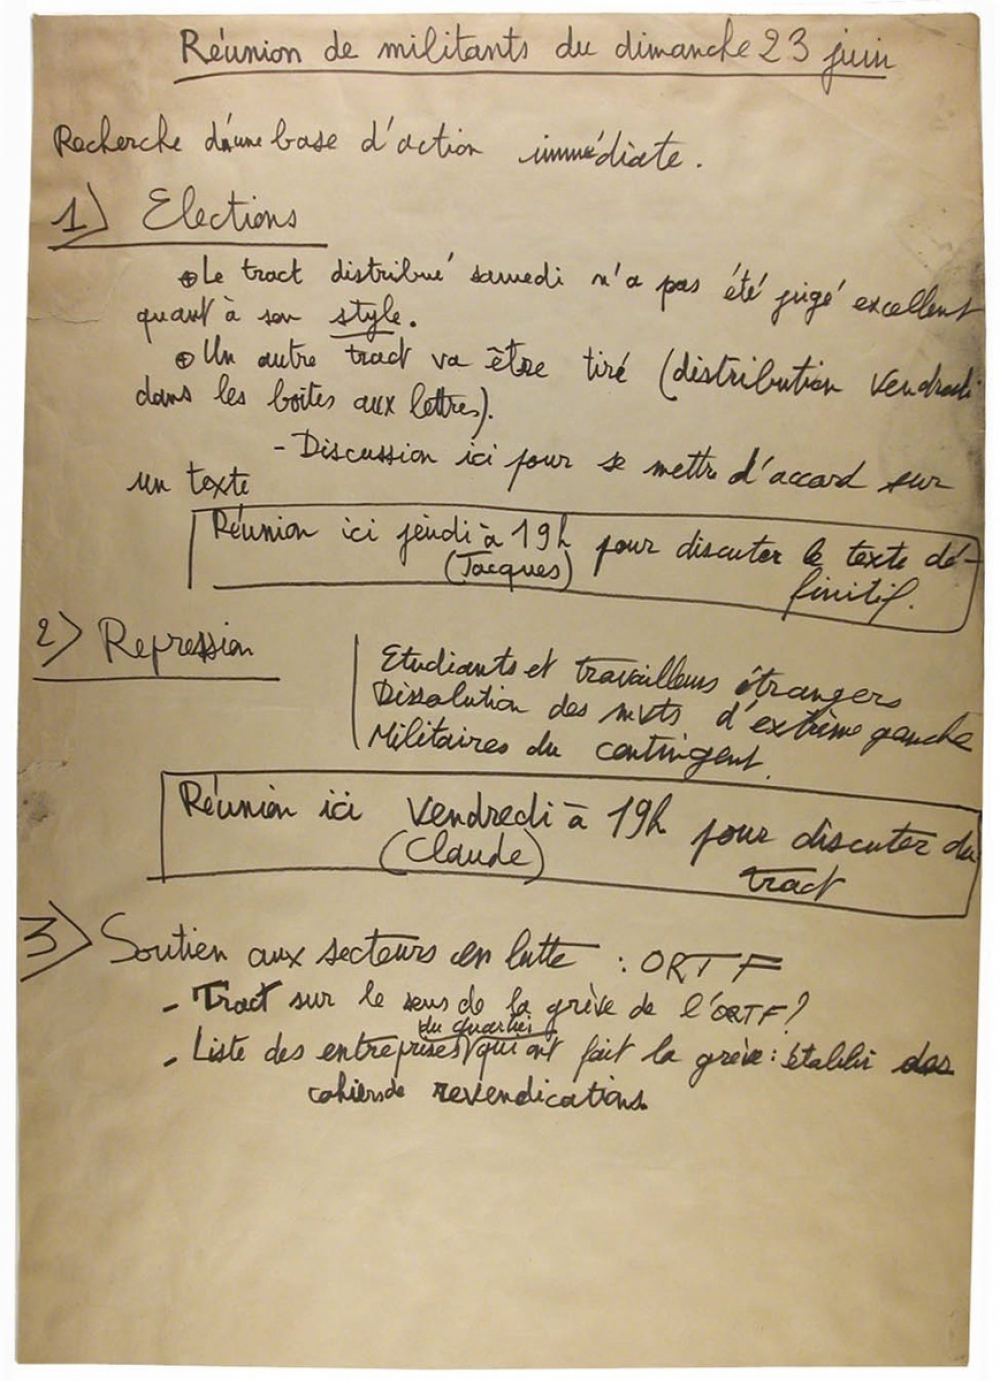 Réunion de militants du dimanche 23 juin
Recherche d'une base d'action immédiate.
1) Elections
⊕ Le tract distribué samedi n'a pas été jugé excellent
quant à son style.
⊕ Un autre tract va être tiré (distribution vendredi
dans les boîtes aux lettres).
- Discussion ici pour se mettre d'accord sur
un texte
Réunion ici jeudi à 19h pour discuter le texte dé-
(Jacques) finitif.
2) Repression
Etudiants et travailleurs étrangers
Dissolution des mvts d'extrême gauche
Militaires du contingent.
Réunion ici vendredi à 19h pour discuter du
(Claude) tract
3) Soutien aux secteurs en lutte : ORTF
- Tract sur le sens de la grève de l'ORTF?
du quartier
- Liste des entreprises qui ont fait la grève : établir des
cahiers de revendications.